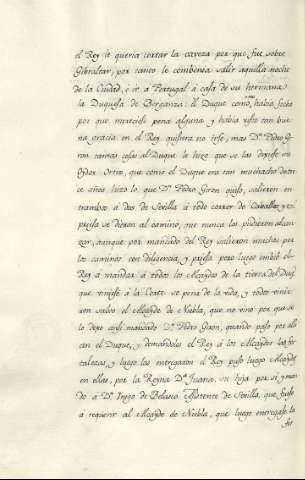 el Rey le queria cortar la caveza por que fue sobre
Gibraltar, por tanto le combenia salir aquella noche
de la Ciudad, è ir a Portugal à casa de su hermana
la Duquesa de Berganza: el Duque como no havia fecho
por que mereciese pena alguna, y havia visto tan bue
na gracia en el Rey quisiera no irse, mas Dn. Pedro Gi
ron tantas cosas al Duque le hizo que se las dixese su
Ayo Ortiz, que como el Duque era tan muchacho de tre
ce años, hizo lo que Dn. Pedro Giron quiso, salieron en
trambos à dos de Sevilla à todo correr de Cavallos y tal
priesa se dieron al camino, que nunca los pudieron alcan
zar, aunque por mandado del Rey salieron muchos por
los caminos con diligencia, y priesa pero luego embiò el
Rey à mandar à todos los Alcaydes de la tierra del Duq.
que viniese à la Corte so pena de la vida, y todos vinie
ron salvo el Alcayde de Niebla, que no vino por que se
lo dexò assi mandado Dn. Pedro Giron, quando paso por alli
con el Duque, y demandoles el Rey à los Alcaydes las for
talezas, y luego las entregaron el Rey puso luego Alcaydes
en ellas, por la Reyna Da. Juana, su hija por si y man
dò a Dn. Iñigo de Belasco Assistente de Sevilla, que fuese
à requerir al Alcayde de Niebla, que luego entregase la
for